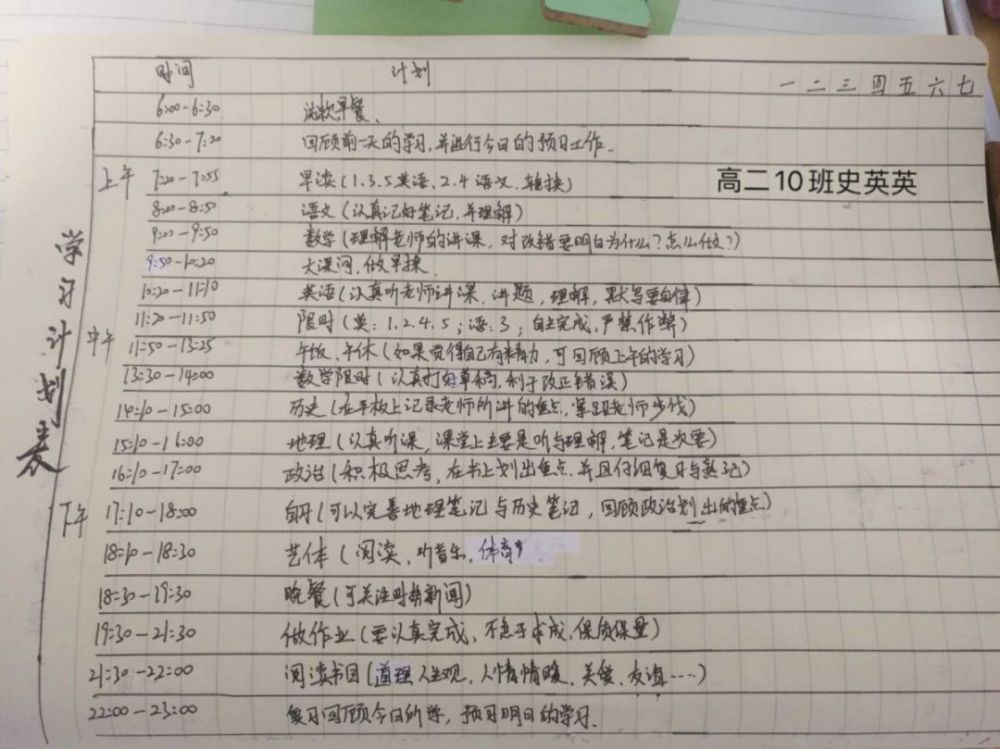 时间 计划 一二三四五六七
6:00-6:30 洗漱早餐、
6:30-7:20 回顾前一天的学习,并进行今日的预习工作.
上午 7:20-7:55 早读(1.3.5英语,2.4语文.轮换) 高二10班史英英
8:00-8:50 语文(认真记好笔记,并理解)
9:00-9:50 数学(理解老师的讲课,对改错要明白为什么?怎么做?)
9:50-10:20 大课间,做早操.
10:20-11:10 英语(认真听老师讲课,讲题,理解,默写要自律)
11:20-11:50 限时(英:1.2.4.5;语:3;自主完成,严禁作弊)
中午 11:50-13:25 午饭、午休(如果觉得自己有精力,可回顾上午的学习)
13:30-14:00 数学限时(认真打好草稿,利于改正错误)
14:10-15:00 历史(在平板上记录老师所讲的重点,紧跟老师步伐)
15:10-16:00 地理(认真听课,课堂上主要是听与理解,笔记是次要)
16:10-17:00 政治(积极思考,在书上划出重点并且仔细复习与熟记)
下午 17:10-18:00 自习(可以完善地理笔记与历史笔记,回顾政治划出的重点)
18:10-18:30 艺体(阅读,听音乐,体育
18:30-19:30 晚餐(可关注时势新闻)
19:30-21:30 做作业(要认真完成,不急于求成,保质保量)
21:30-22:00 阅读书目(道理 人生观,人情情暖、关爱、友谊……)
22:00-23:00 复习回顾今日所学,预习明日的学习.
学习计划表